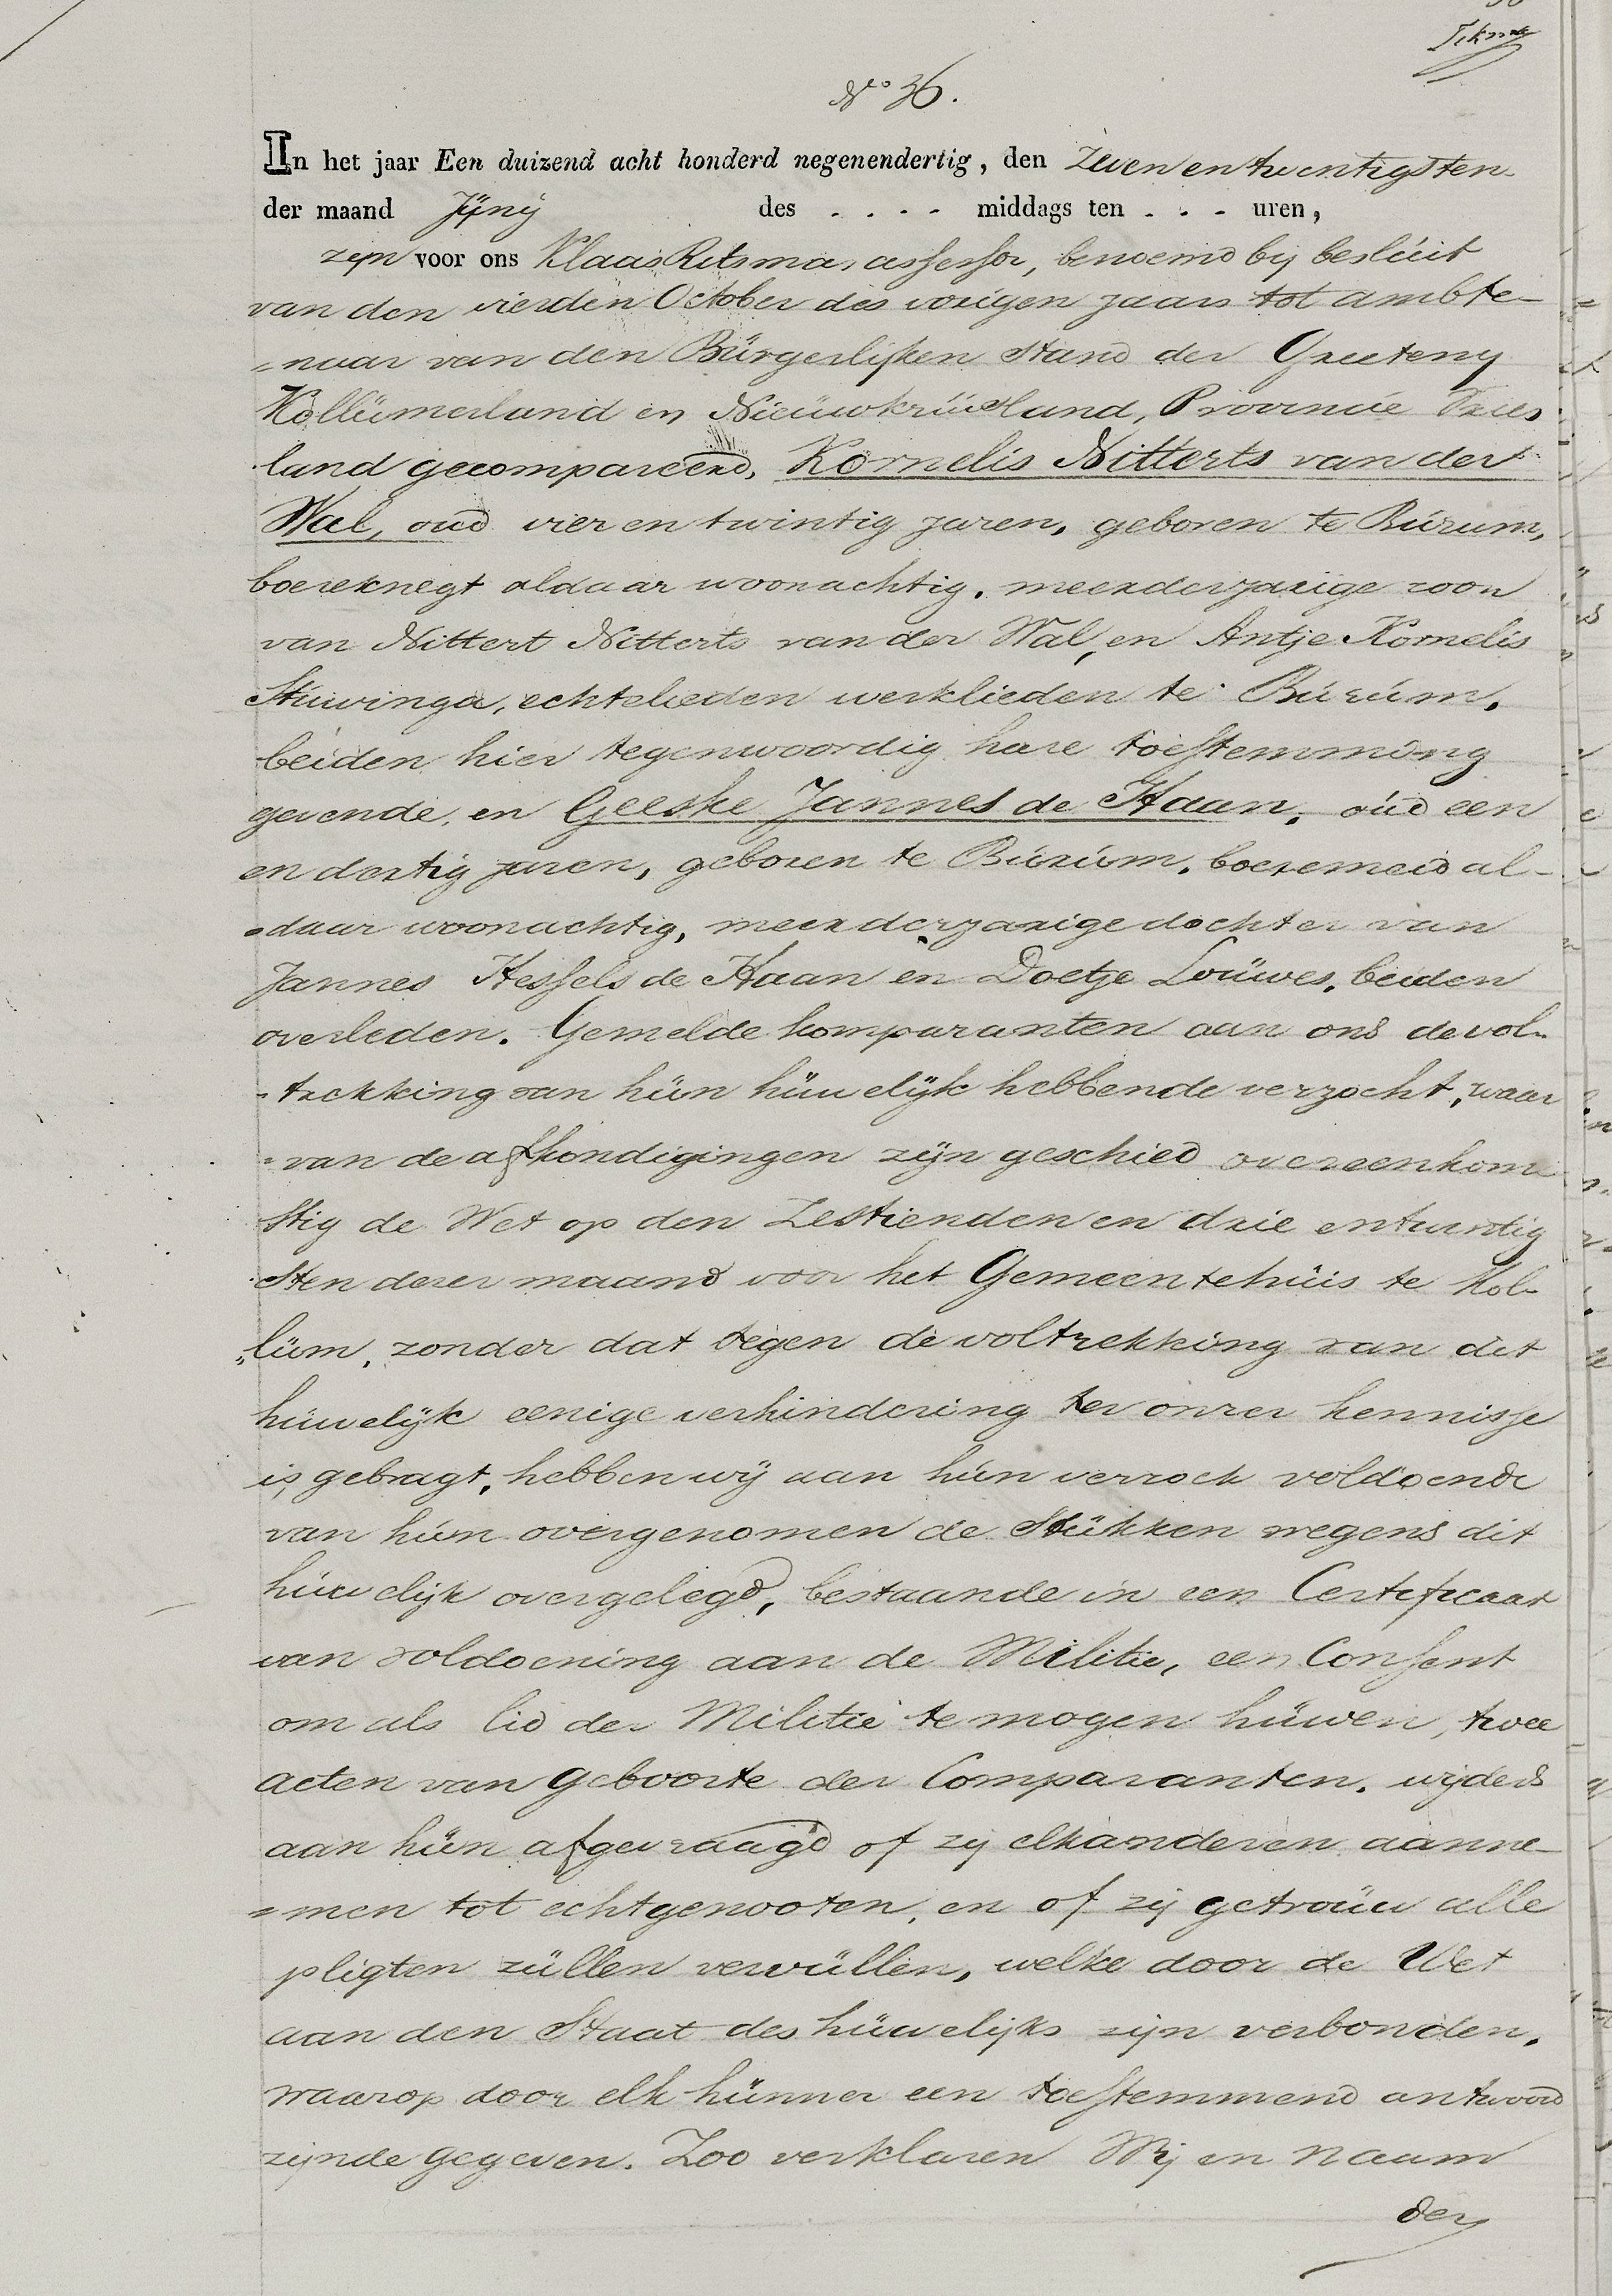 No 36.
In het jaar Een duizend acht honderd negenendertig, den zeven en twentigsten
der maand Jÿnÿ des . . . . middags ten . . . uren,
zijn voor ons Klaas Ritsma, assessor, benoemd bij besluit
van den vierden October des vorigen jaars tot ambte-
-naar van den Bürgerlijken Stand der Grieteny
Kollümerland en Nieüwkrüisland, Provincie Fries
land gecompareerd, Kornelis Nitterts van der
Wal, oud vier en twintig jaren, geboren te Bürum,
boereknegt aldaar woonachtig, meerderjarige zoon
van Nittert Nitterts van der Wal, en Antje Kornelis
Stüwinga, echtelieden werklieden te Bürüm,
beiden hier tegenwoordig hare toestemming
gevende, en Geeske Jannes de Haan, oüd een
en dertig jaren, geboren te Bürüm, boeremeid al-
-daar woonachtig, meerderjarige dochter van
Jannes Hessels de Haan en Doetje Loüwes, beiden
overleden. Gemelde komparanten aan ons de vol-
-trekking van hün hüwelijk hebbende verzocht, waar
-van de afkondigingen zijn geschied overeenkom
stig de Wet op den Zestienden en drie en twintig
sten dezer maand voor het Gemeentehüis te Kol-
„lüm, zonder dat tegen de voltrekking van dit
hüwelijk eenige verhindering ter onzer kennisse
is gebragt, hebben wij aan hün verzoek voldoende
van hün overgenomen de Stükken wegens dit
hüwelijk overgelegd, bestaande in een Certificaat
van voldoening aan de Militie, een Consent
om als lid der Militie te mogen hüwen, twee
acten van geboorte der Comparanten, wijders
aan hün afgevraagd of zij elkanderen aanne-
-men tot echtgenooten, en of zij getroüw alle
pligten züllen vervüllen, welke door de Wet
aan den Staat des hüwelijks zijn verbonden,
waarop door elk hünner een toestemmend antwoord
zijnde gegeven. Zoo verklaren Wij in naam
der